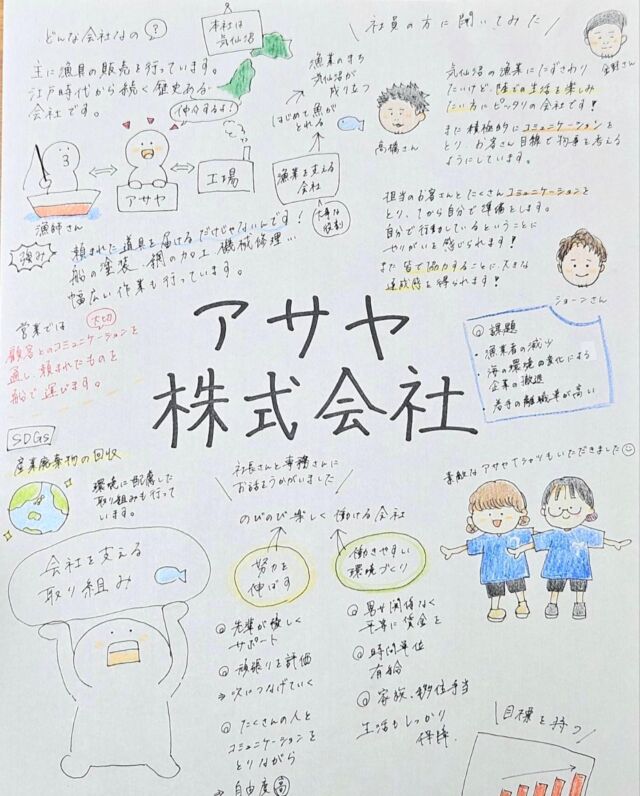 どんな会社なの?
主に漁具の販売を行っています。
江戸時代から続く歴史ある
会社です。
本社は
気仙沼
仲介するよ!
漁師さん
アサヤ
工場
漁業のまち
気仙沼が
成り立つ
はじめて魚が
とれる
漁業を支える
会社
大事な
役割
社員の方に聞いてみた
気仙沼の漁業にたずさわり
たいけど、陸での生活を楽しみ
たい方にピッタリの会社です!
また積極的にコミュニケーションを
とり、お客さん目線で物事を考える
ようにしています。
高橋さん
担当のお客さんとたくさんコミュニケーションを
とり、1から自分で準備をします。
自分で行動しているということに
やりがいを感じられます!
また皆で協力することに大きな
達成感を得られます!
ショーンさん
強み
頼まれた道具を届けるだけじゃないんです!
船の塗装、網の加工、機械修理…
幅広い作業も行っています。
営業では
大切
顧客とのコミュニケーションを
通し、頼まれたものを
船で運びます。
アサヤ
株式会社
課題
・漁業者の減少
・海の環境の変化による
企業の撤退
・若手の離職率が高い
SDGs
産業廃棄物の回収
環境に配慮した
取り組みも行って
います。
会社を支える
取り組み
社長さんと専務さんに
お話をうかがいました
のびのび楽しく働ける会社
努力を
伸ばす
先輩が優しく
サポート
頑張りを評価
→次につなげていく
たくさんの人と
コミュニケーションを
とりながら
→自由度高
働きやすい
環境づくり
男女関係なく
平等に賃金を
時間単位
有給
家族、移住手当
生活もしっかり
保障
素敵なアサヤTシャツもいただきました
目標を持つ